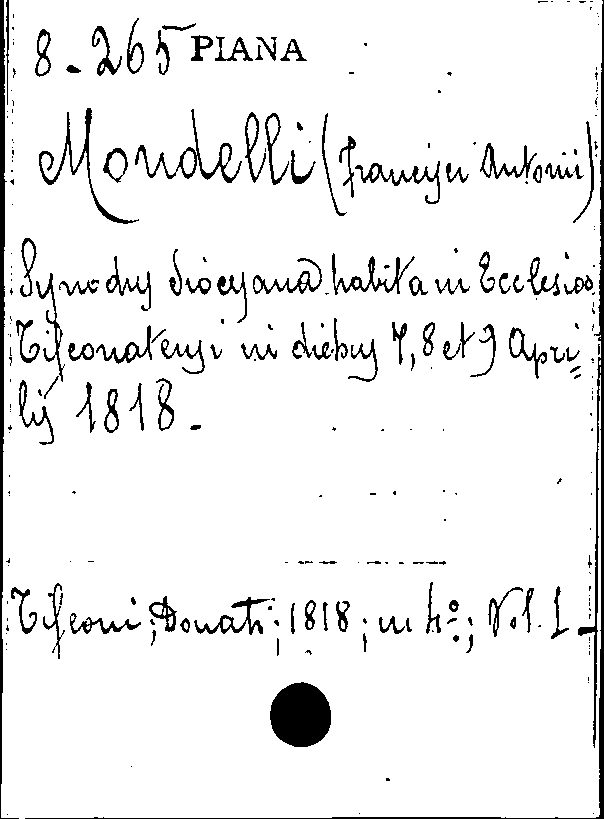 8-265 PIANA
Mondelli (Francisci Antonii)
Synodus dioecesana habita in Ecclesia
Tifeonatensi in diebus 7, 8 et 9 Apri=
lis 1818.-
Tifeoni; Donati; 1818; in 4º; Vol. 1-